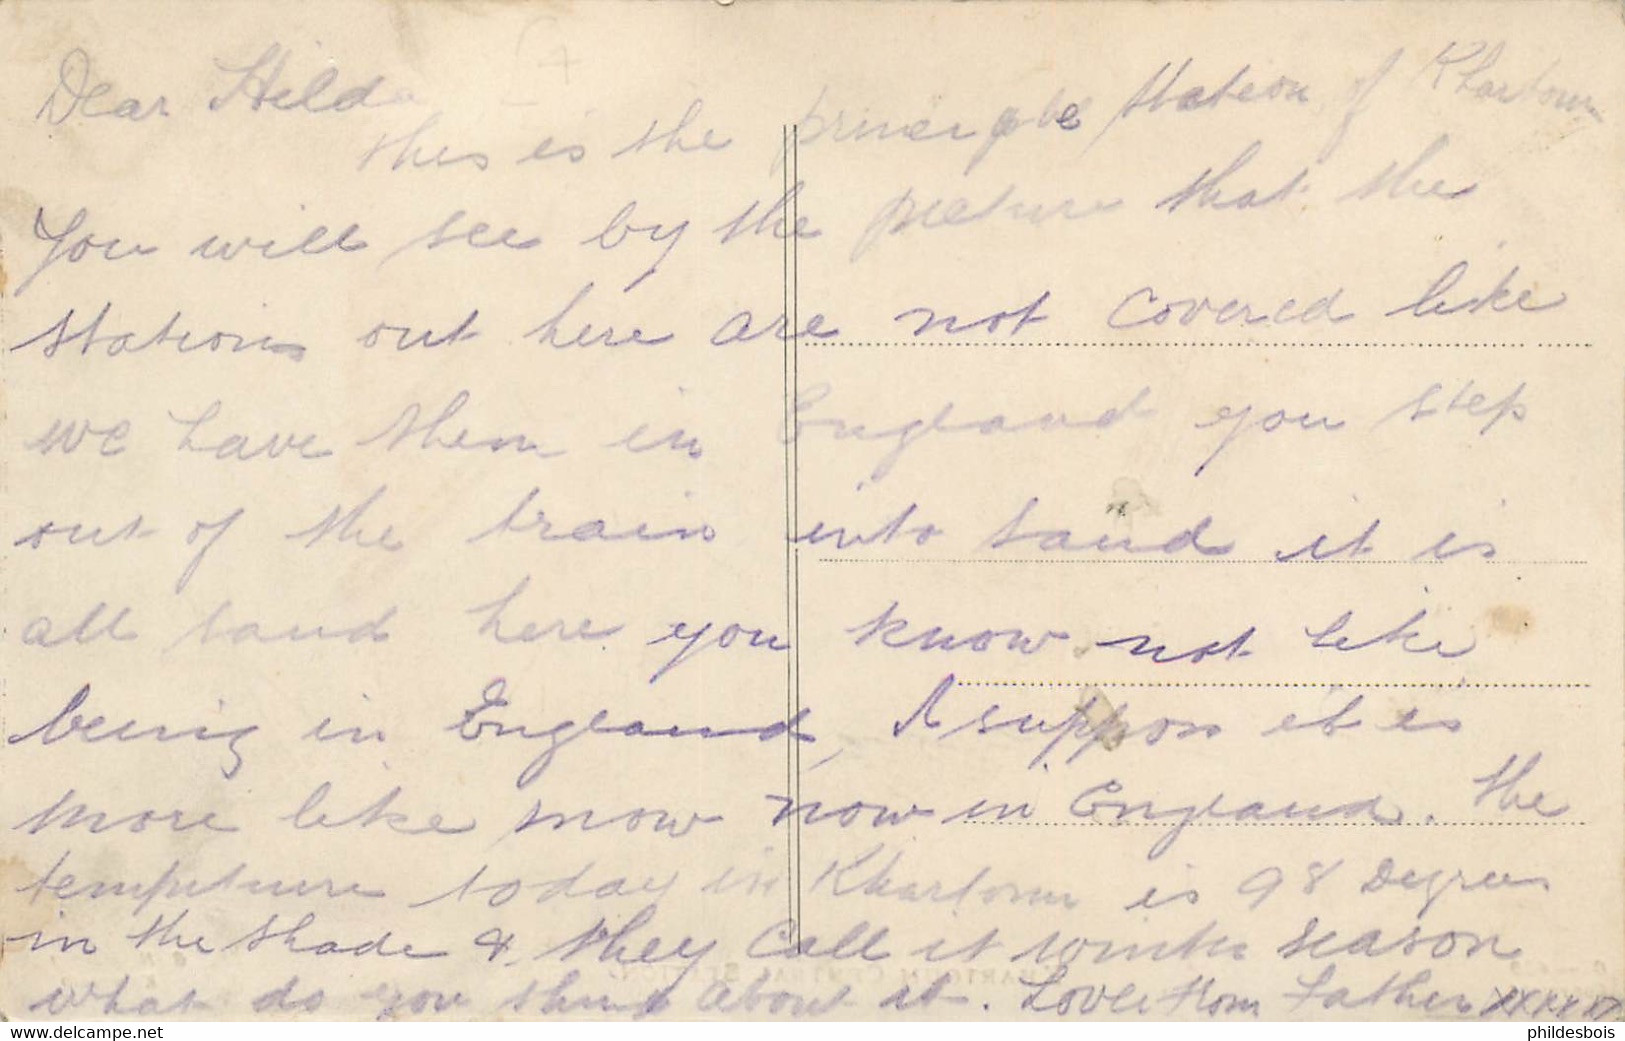 Dear Hilda
this is the principle station of Khartoum
You will see by the picture that the
stations out here are not covered like
we have them in England you step
out of the train into sand it is
all sand here you know not like
being in England, I suppose it is
more like snow now in England. The
tempeture today in Khartoum is 98 Degrees
in the shade & they call it winter season
what do you think about it. Love from Father xxxxxx
KHARTOUM CENTRAL STATION
delcampe.net
phildesbois